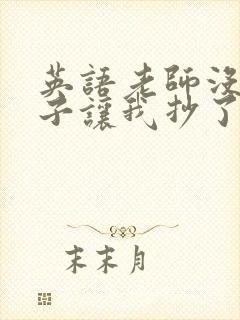 英語老師沒
子讓我抄了
末末月